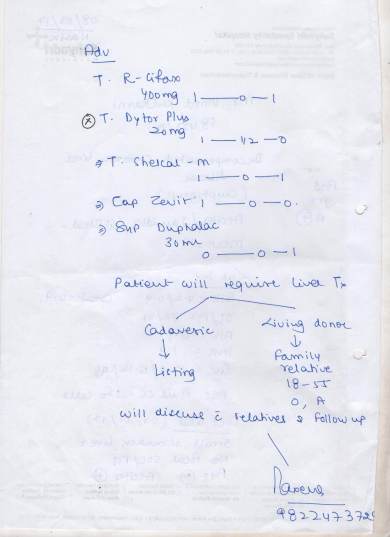 Adv
T. R-Cifax
400mg 1 — 0 — 1
T. Dytor Plus
20mg
1 — 1/2 — 0
T. Shelcal-M
1 — 0 — 1
Cap Zevit 1 — 0 — 0.
Syp Duphalac
30ml
0 — 0 — 1
Patient will require Liver Tx
Cadaveric Living donor
↓ ↓
Listing Family
relative
18-55
O, A
will discuss c̄ relatives & follow up
9822473729